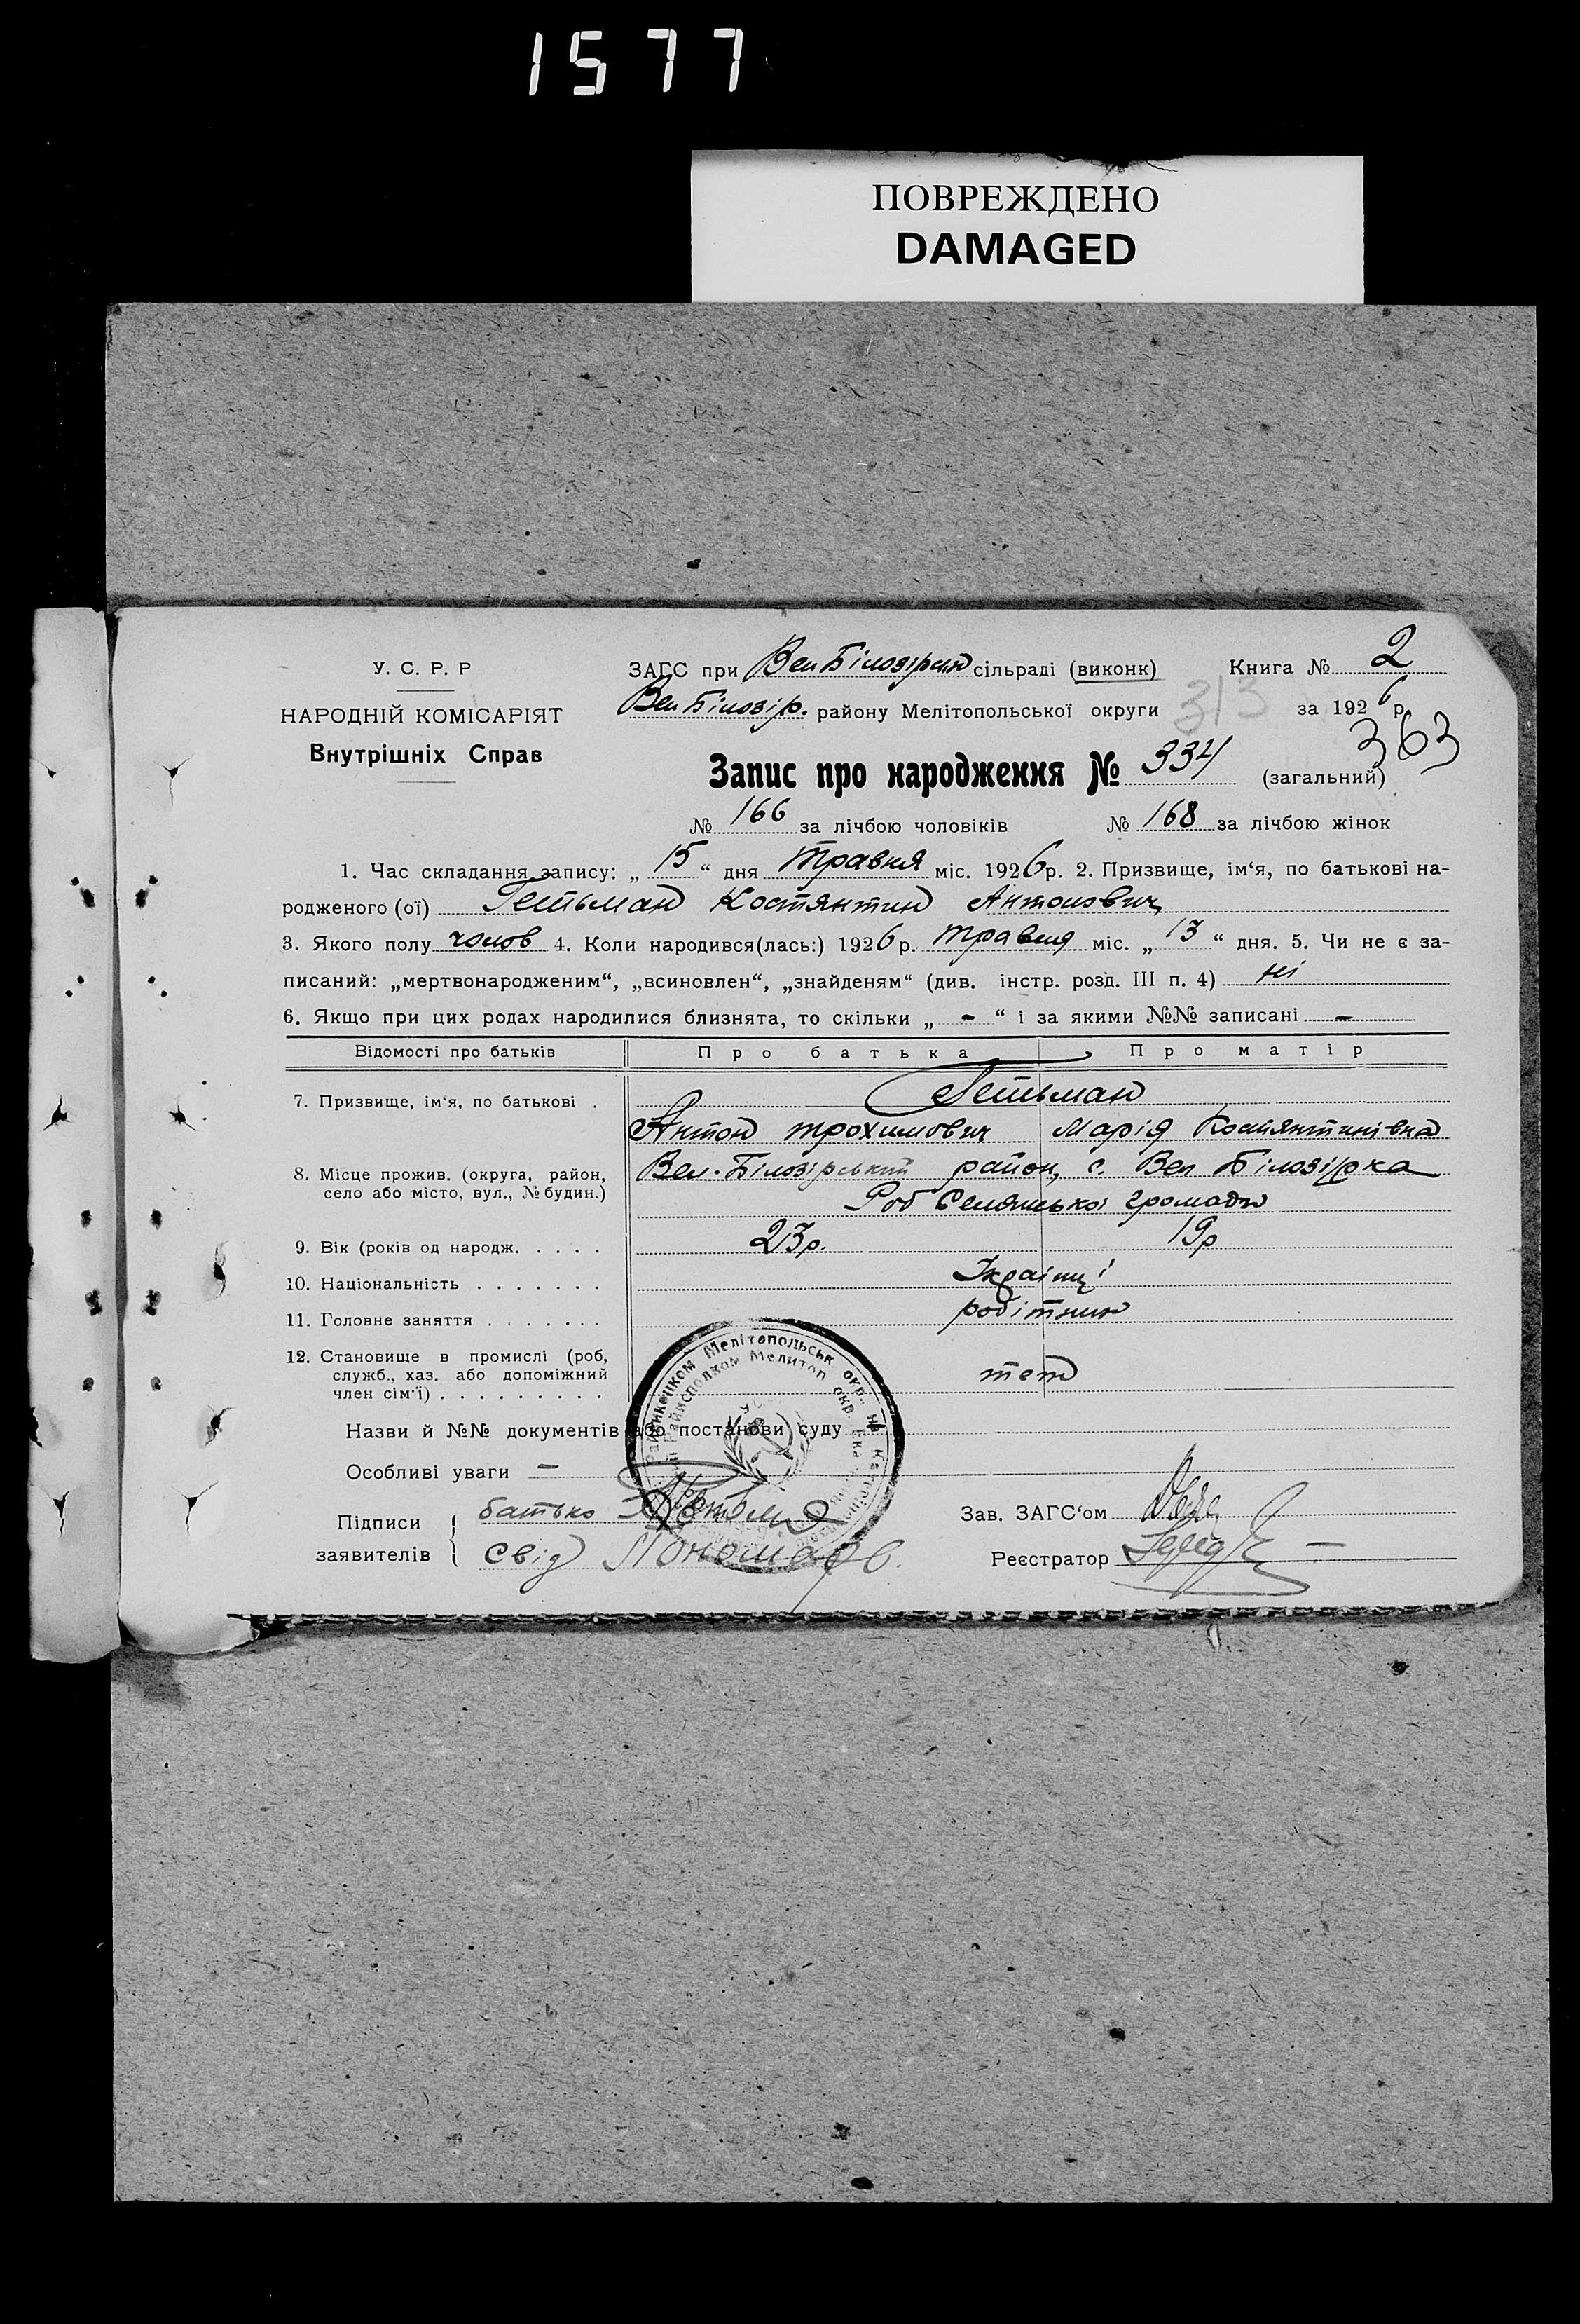 1577
ПОВРЕЖДЕНО
DAMAGED
У. С. Р. Р
НАРОДНІЙ КОМІСАРІЯТ
Внутрішніх Справ
ЗАГС при Вел Білозірськ сільраді (виконк)
Книга № 2
Вел Білозір. району Мелітопольської округи
313
за 1926 р.
363
Запис про народження № 334 (загальний)
№ 166 за лічбою чоловіків № 168 за лічбою жінок
1. Час складання запису: „ 15 “ дня травня міс. 1926р. 2. Призвище, ім‘я, по батькові на-
родженого (ої) Гетьман Костянтин Антонович
3. Якого полу чолов 4. Коли народився(лась:) 1926 р. травня міс. „ 13 “ дня. 5. Чи не є за-
писаний: „мертвонародженим“, „всиновлен“, „знайденям“ (див. інстр. розд. III п. 4) ні
6. Якщо при цих родах народилися близнята, то скільки „ - “ і за якими №№ записані -
Відомості про батьків
Про батька
Про матір
7. Призвище, ім‘я, по батькові .
Гетьман
Антон Трохимович Марія Костянтинівна
8. Місце прожив. (округа, район,
село або місто, вул., № будин.)
Вел. Білозірський район, с. Вел Білозірка
Роб Селянської громади
9. Вік (років од народж. . . . .
23р. 19р
10. Національність . . . . . . .
Українці
11. Головне заняття . . . . . . .
робітник
12. Становище в промислі (роб,
служб., хаз. або допоміжний
член сім‘ї) . . . . . . . . .
теж
Назви й №№ документів або постанови суду
Особливі уваги -
Підписи
заявителів
батько Гетьман
свід Пономарв.
Зав. ЗАГС‘ом
Реєстратор